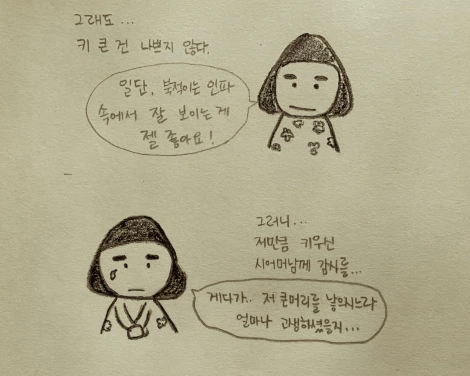 그래도...
키 큰 건 나쁘지 않다.
일단, 북적이는 인파
속에서 잘 보이는 게
젤 좋아요!
그러니...
저만큼 키우신
시어머님께 감사를...
게다가.. 저 큰머리를 낳으시느라
얼마나 고생하셨을지...